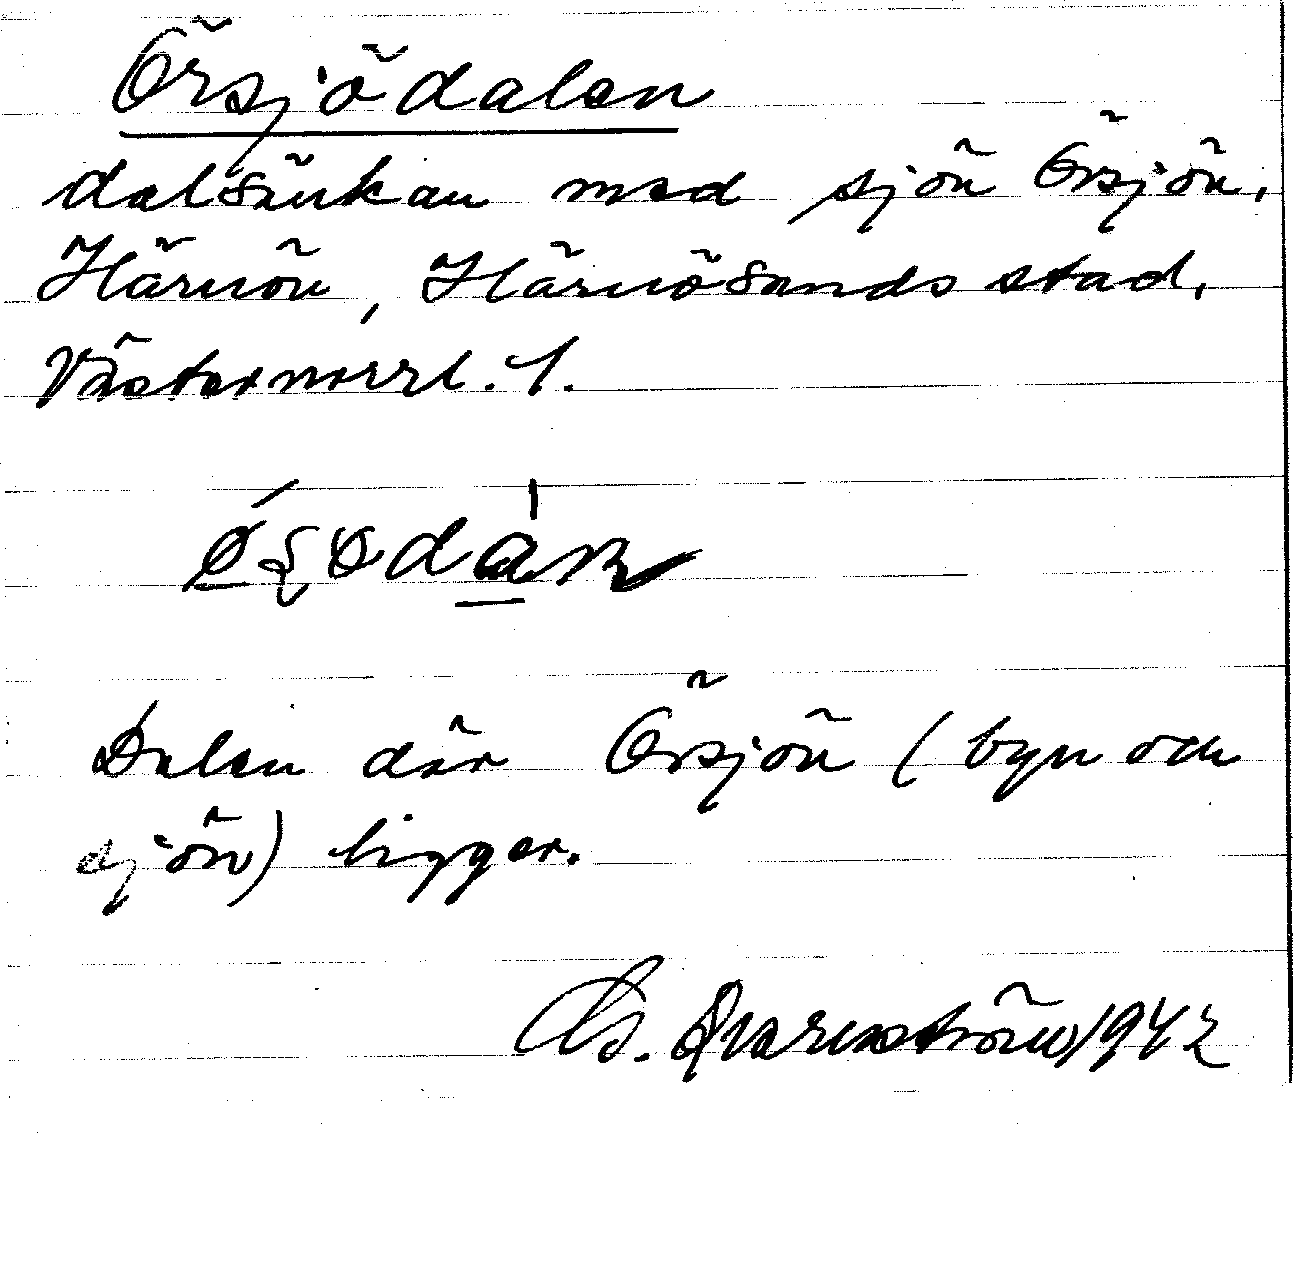 Örsjödalen
dalsänkan med sjön Örsjön,
Härnön, Härnösands stad,
Västernorrl. l.
Dalen där Örsjön (byn och
sjön) ligger.
1942